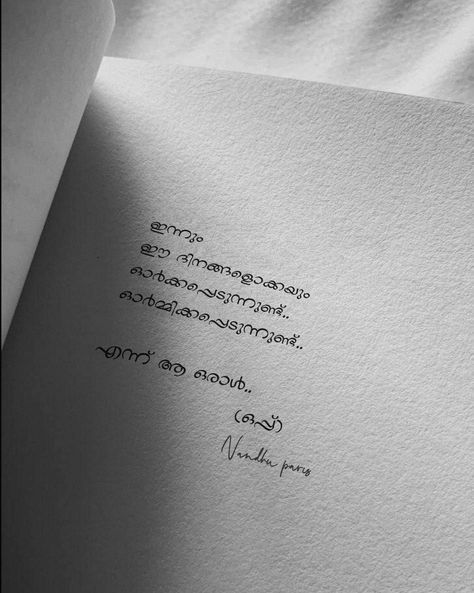 ഇന്നും
ഈ ദിനങ്ങളൊക്കയും
ഓർക്കപ്പെടുന്നുണ്ട്..
ഓർമ്മിക്കപ്പെടുന്നുണ്ട്..
എന്ന് ആ ഒരാൾ..
(ഒപ്പ്)
Nandhu paris